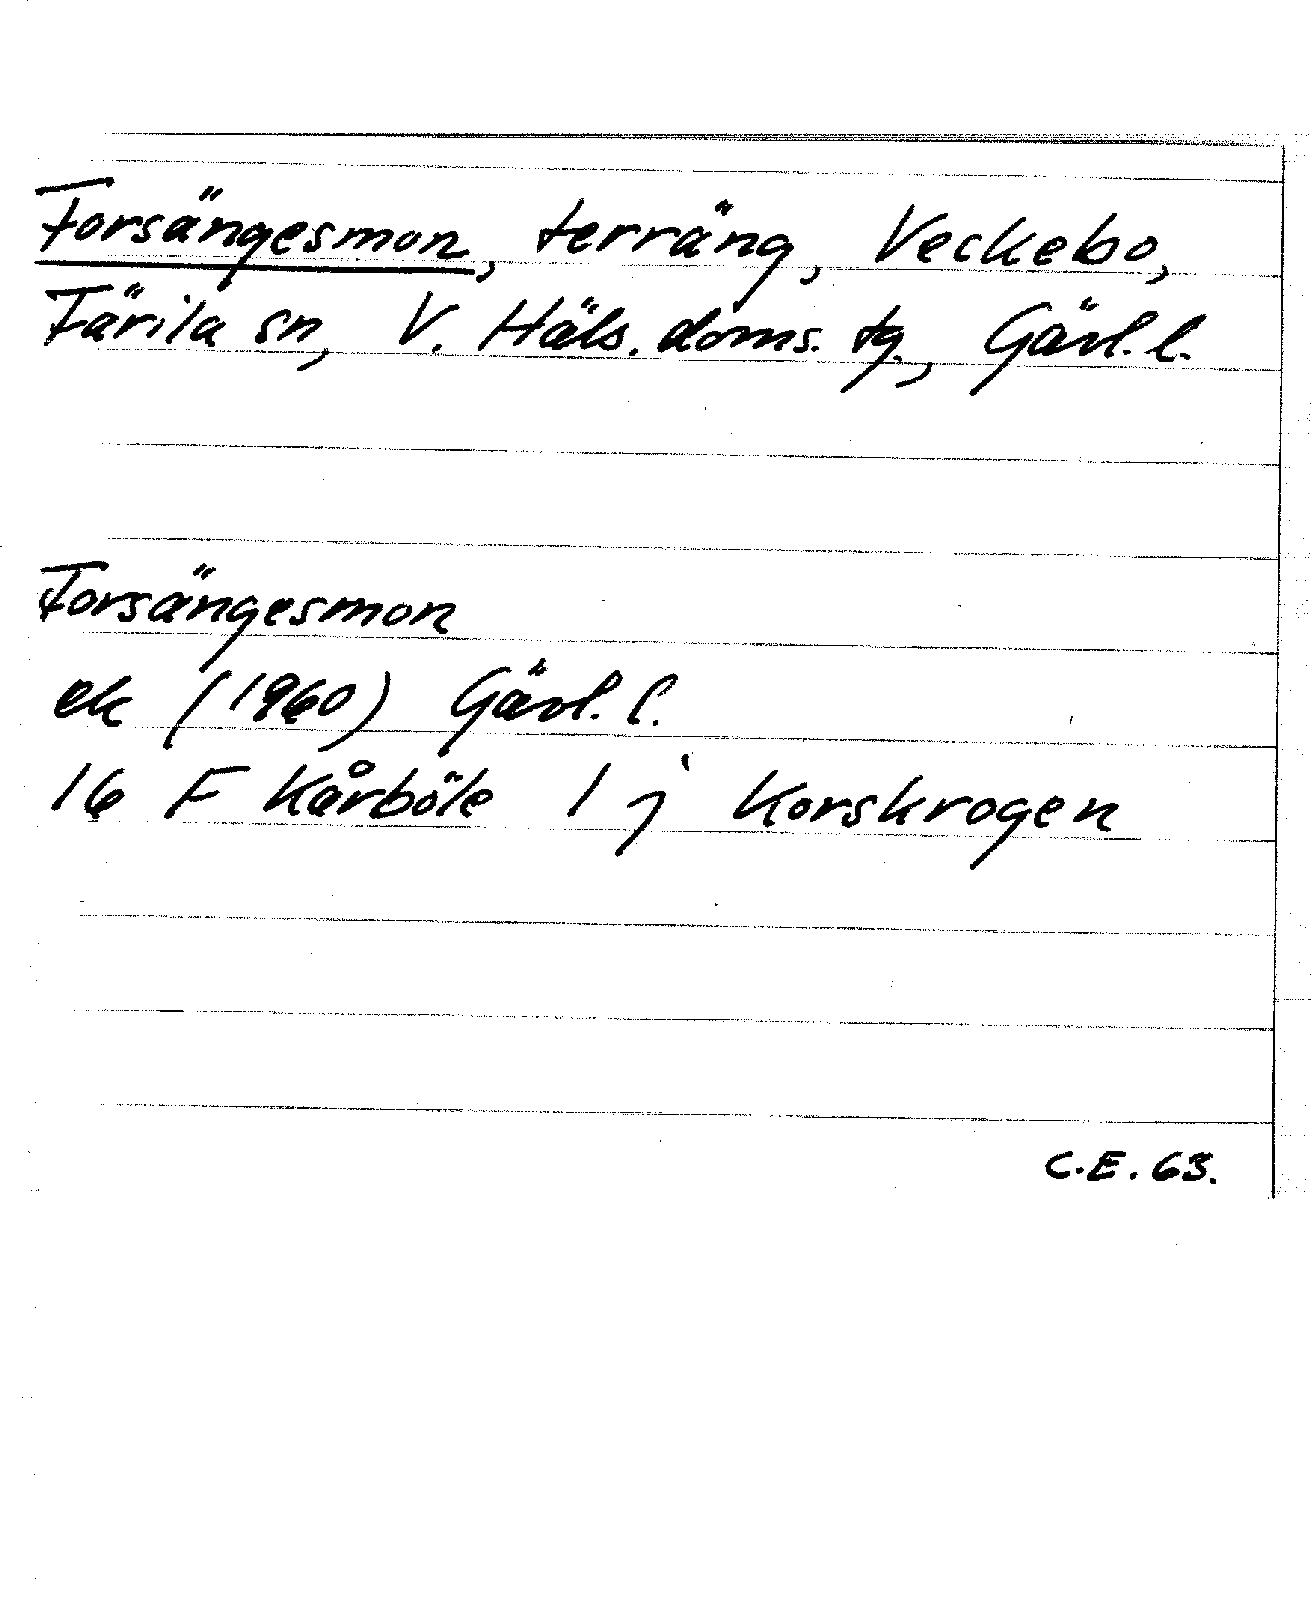 Forsängesmon, terräng, Veckebo,
Färila sn, V. Häls. doms. tg., Gävl. l.
Forsängesmon
ek (1960) Gävl. l.
16 F Kårböle 1 j Korskrogen
C.E. 63.